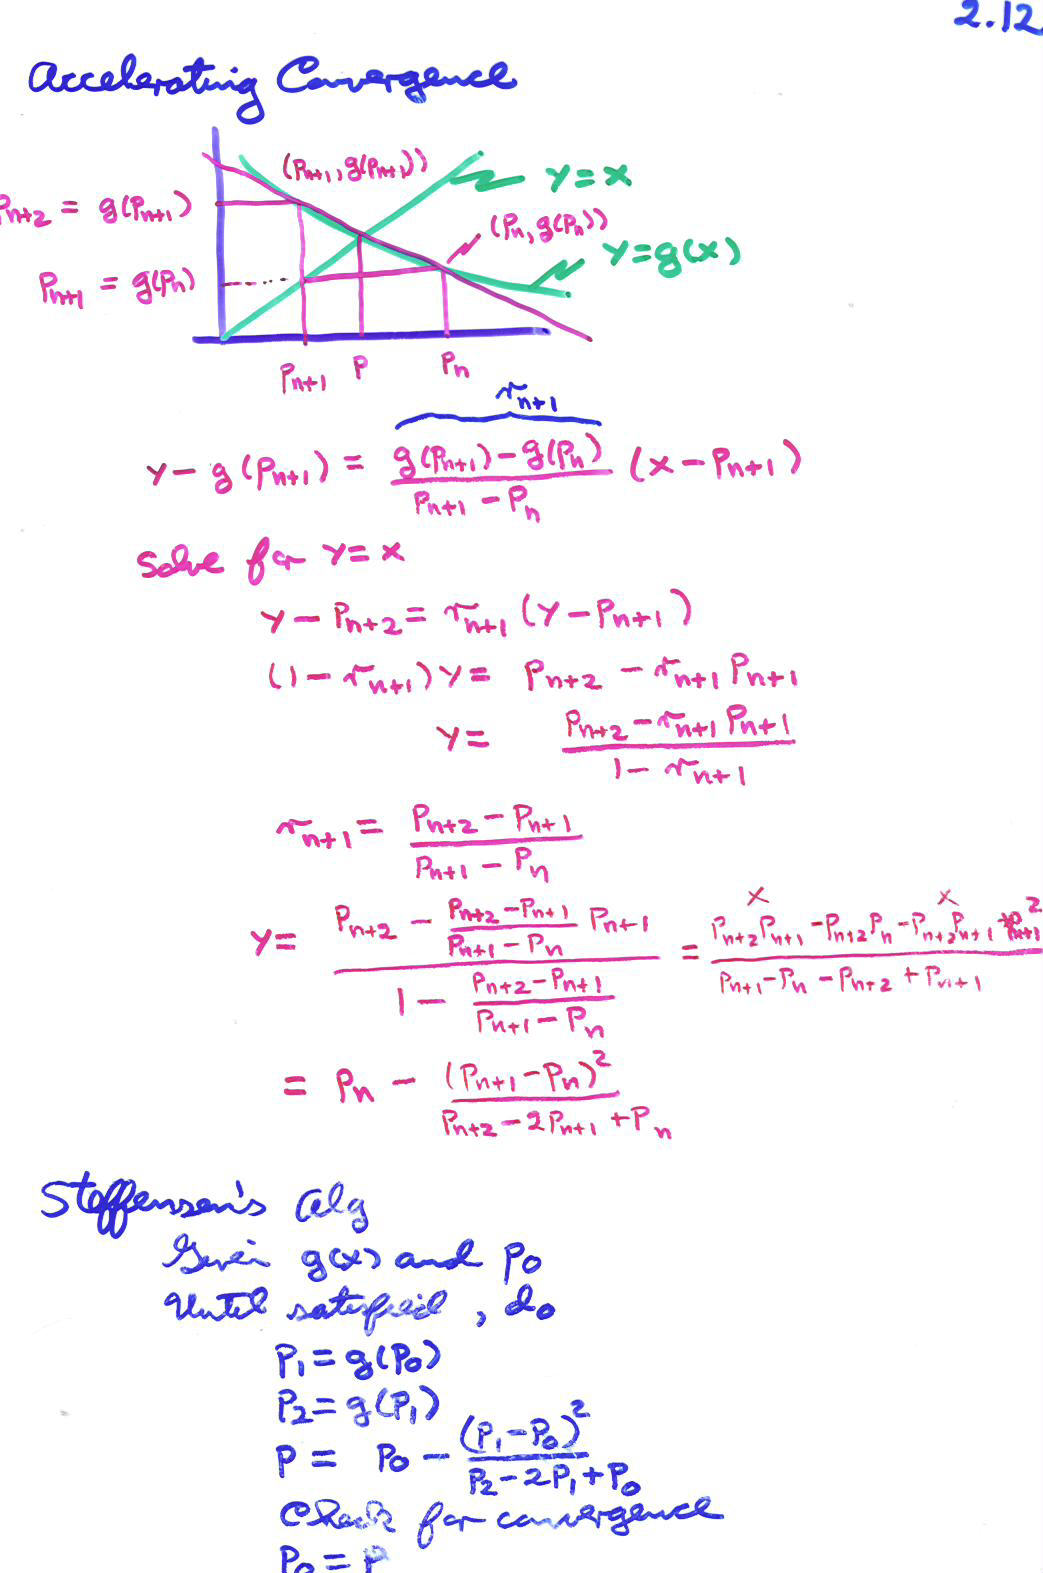 2.12
Accelerating Convergence
(P_{n+1}, g(P_{n+1}))
y=x
P_{n+2} = g(P_{n+1})
(P_n, g(P_n))
y=g(x)
P_{n+1} = g(P_n)
P_{n+1} P P_n
r_{n+1}
y - g(P_{n+1}) = \frac{g(P_{n+1}) - g(P_n)}{P_{n+1} - P_n} (x - P_{n+1})
Solve for y = x
y - P_{n+2} = r_{n+1} (y - P_{n+1})
(1 - r_{n+1}) y = P_{n+2} - r_{n+1} P_{n+1}
y = \frac{P_{n+2} - r_{n+1} P_{n+1}}{1 - r_{n+1}}
r_{n+1} = \frac{P_{n+2} - P_{n+1}}{P_{n+1} - P_n}
y = \frac{P_{n+2} - \frac{P_{n+2} - P_{n+1}}{P_{n+1} - P_n} P_{n+1}}{1 - \frac{P_{n+2} - P_{n+1}}{P_{n+1} - P_n}} = \frac{P_{n+2} P_{n+1} - P_{n+2} P_n - P_{n+2} P_{n+1} + P_{n+1}^2}{P_{n+1} - P_n - P_{n+2} + P_{n+1}}
= P_n - \frac{(P_{n+1} - P_n)^2}{P_{n+2} - 2P_{n+1} + P_n}
Steffensen's Alg
Given g(x) and P_0
Until satisfied, do
P_1 = g(P_0)
P_2 = g(P_1)
P = P_0 - \frac{(P_1 - P_0)^2}{P_2 - 2P_1 + P_0}
Check for convergence
P_0 = P